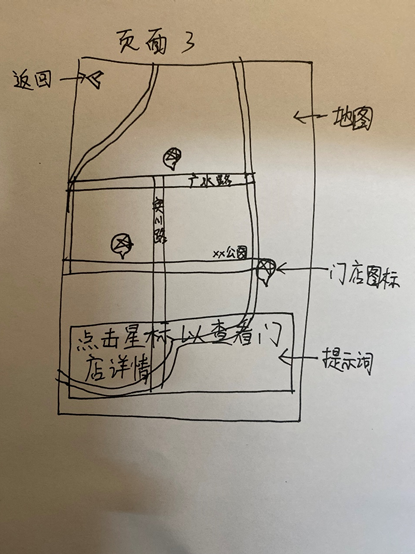 页面3
返回
地图
广水路
安川路
xx公园
门店图标
点击星标以查看门
店详情
提示词